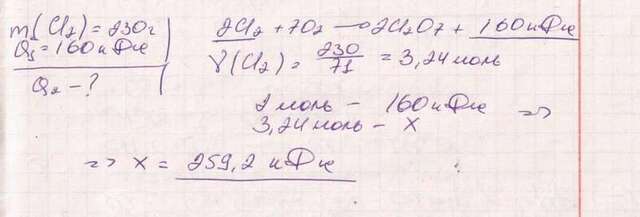 m(Cl2) = 230г
Q1 = 160 кДж
Q2 - ?
2Cl2 + 7O2 → 2Cl2O7 + 160 кДж
γ(Cl2) = 230/71 = 3,24 моль
2 моль - 160 кДж =>
3,24 моль - x
=> x = 259,2 кДж